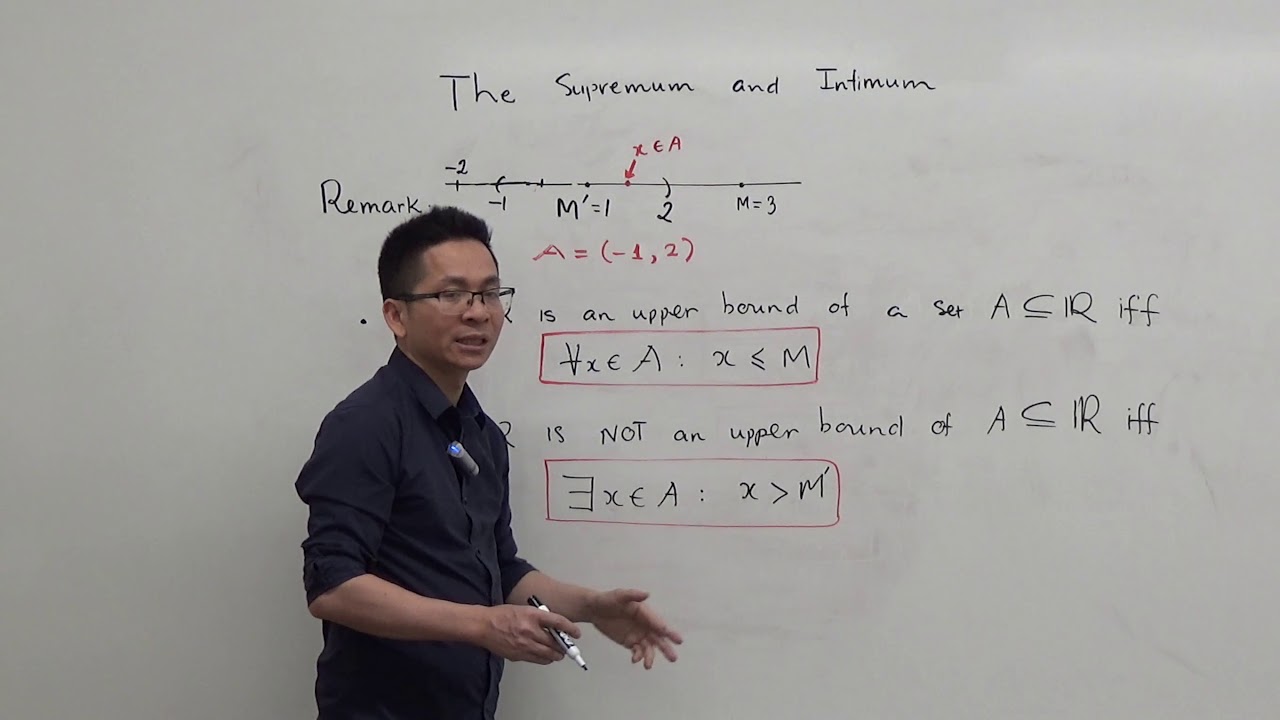 The Supremum and Infimum
x ∈ A
-2
Remark:
-1 M'=1 2 M=3
A = (-1, 2)
• R is an upper bound of a set A ⊆ ℝ iff
∀x ∈ A : x ≤ M
R is NOT an upper bound of A ⊆ ℝ iff
∃x ∈ A : x > M'